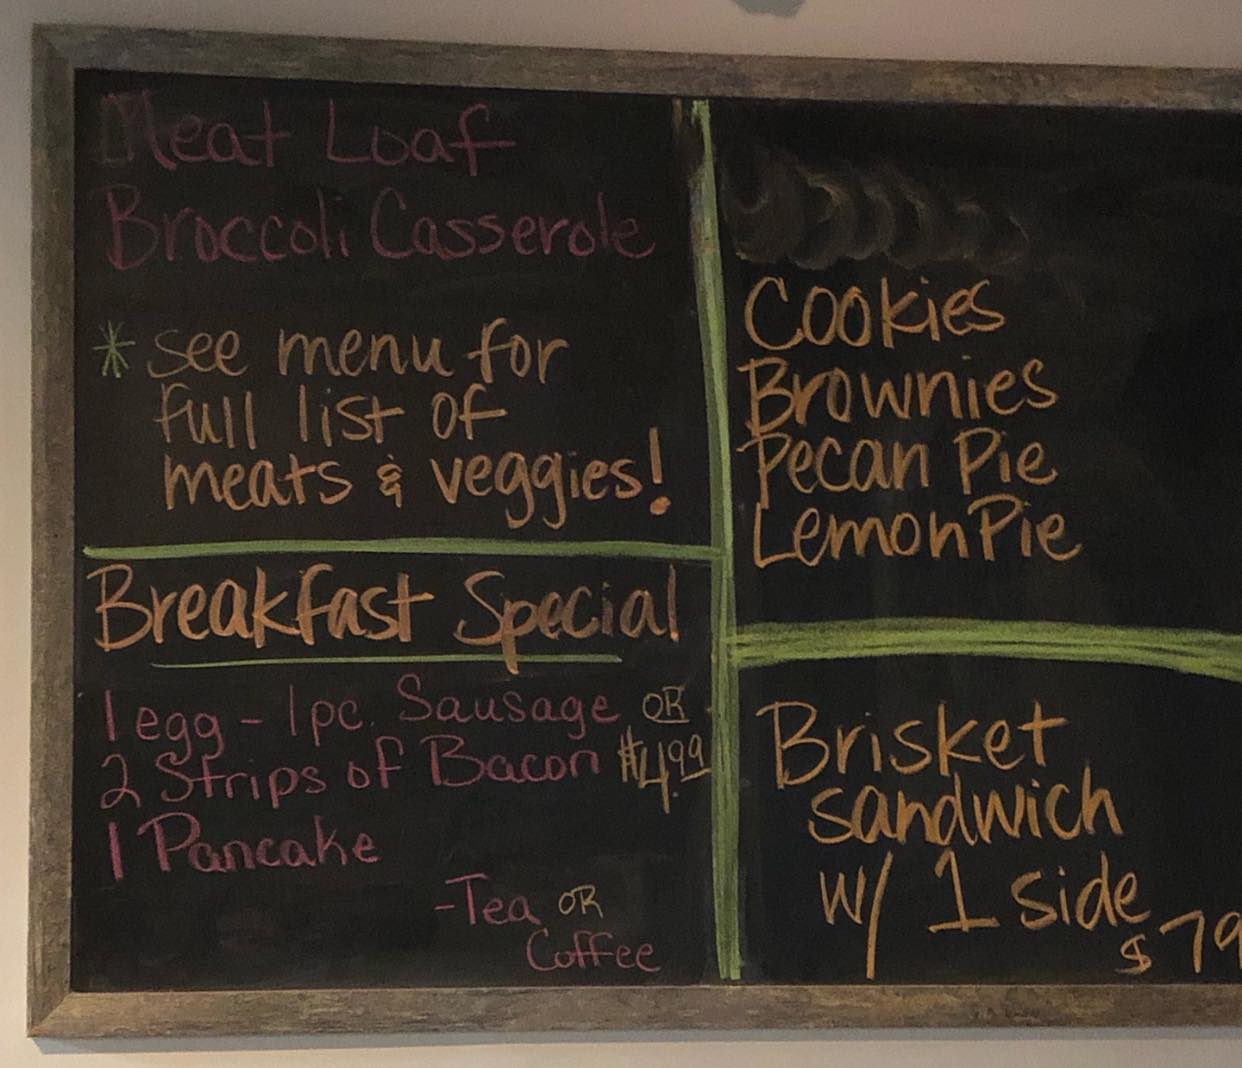 Meat Loaf
Broccoli Casserole
* see menu for
full list of
meats & veggies!
Breakfast Special
1 egg - 1 pc. Sausage OR
2 Strips of Bacon $4.99
1 Pancake
- Tea OR
Coffee
Cookies
Brownies
Pecan Pie
Lemon Pie
Brisket
sandwich
w/ 1 side